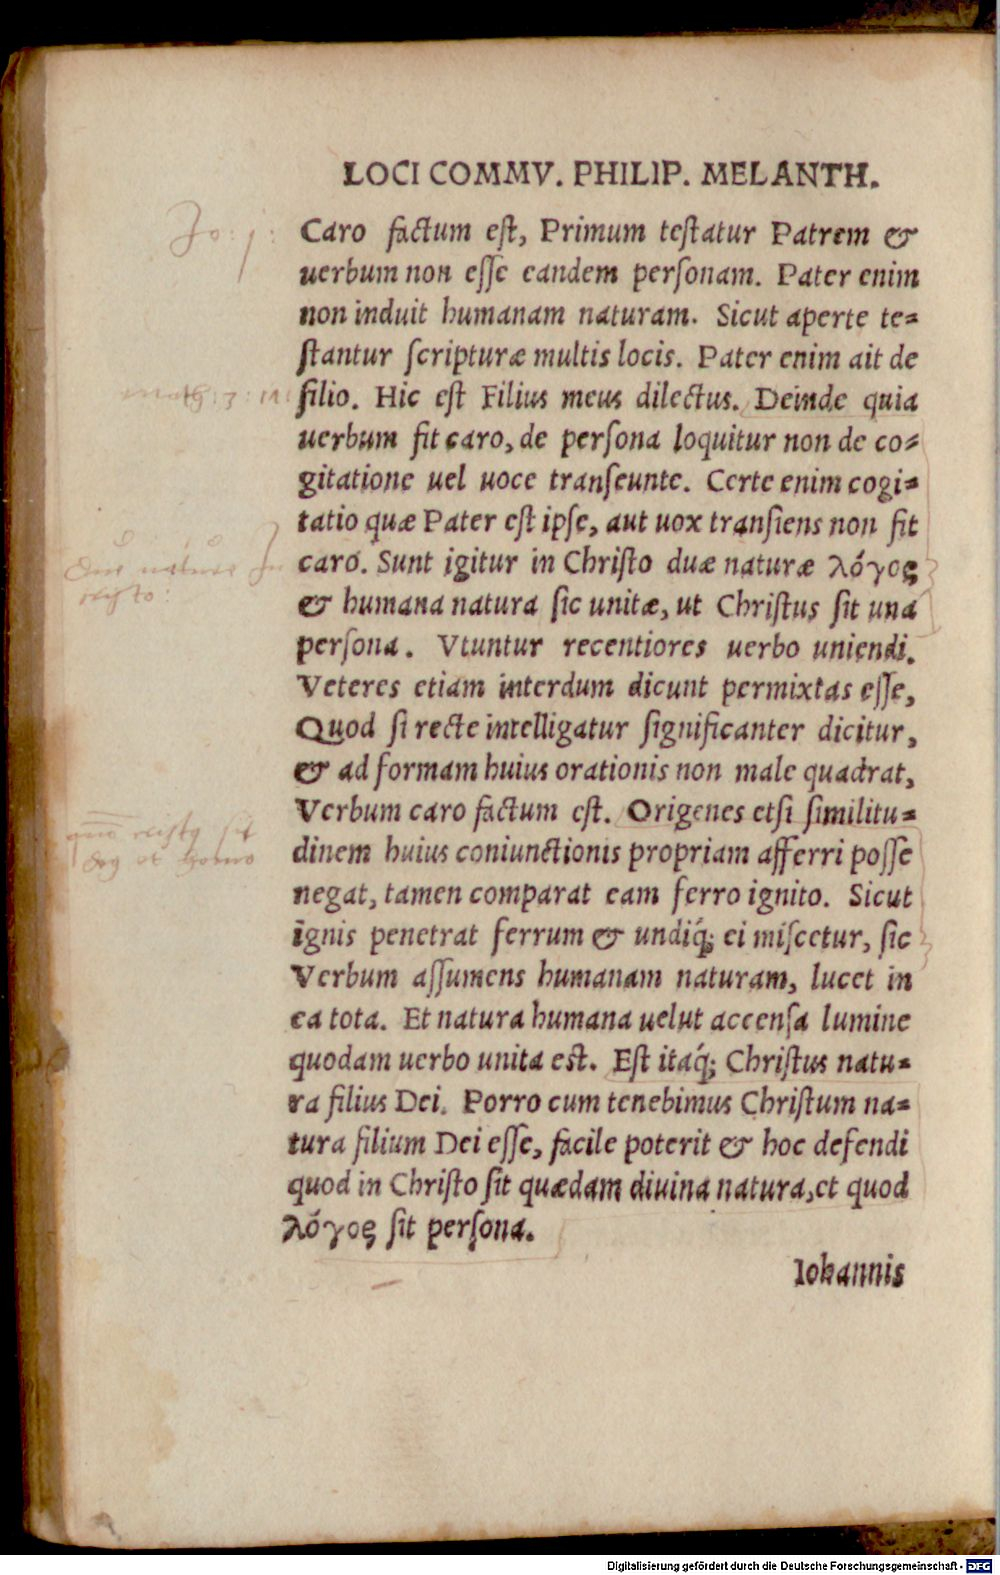 LOCI COMMV. PHILIP. MELANTH.
Jo: 1:
Caro factum eſt, Primum teſtatur Patrem &
uerbum non eſſe eandem perſonam. Pater enim
non induit humanam naturam. Sicut aperte te=
ſtantur ſcripturæ multis locis. Pater enim ait de
math: 3: 17:
filio. Hic eſt Filius meus dilectus. Deinde quia
uerbum fit caro, de perſona loquitur non de co=
gitatione uel uoce tranſeunte. Certe enim cogi=
tatio quæ Pater eſt ipſe, aut uox tranſiens non fit
due nature In
cristo:
caro. Sunt igitur in Chriſto duæ naturæ λόγος
& humana natura ſic unitæ, ut Chriſtus ſit una
perſona. Vtuntur recentiores uerbo uniendi.
Veteres etiam interdum dicunt permixtas eſſe,
Quod ſi recte intelligatur ſignificanter dicitur,
& ad formam huius orationis non male quadrat,
Verbum caro factum eſt. Origenes etſi ſimilitu=
sit
et homo
dinem huius coniunctionis propriam afferri poſſe
negat, tamen comparat eam ferro ignito. Sicut
ignis penetrat ferrum & undiq́; ei miſcetur, ſic
Verbum aſſumens humanam naturam, lucet in
ea tota. Et natura humana uelut accenſa lumine
quodam uerbo unita eſt. Eſt itaq́; Chriſtus natu=
ra filius Dei. Porro cum tenebimus Chriſtum na=
tura filium Dei eſſe, facile poterit & hoc defendi
quod in Chriſto ſit quædam diuina natura, et quod
λόγος ſit perſona.
Iohannis
Digitalisierung gefördert durch die Deutsche Forschungsgemeinschaft - DFG